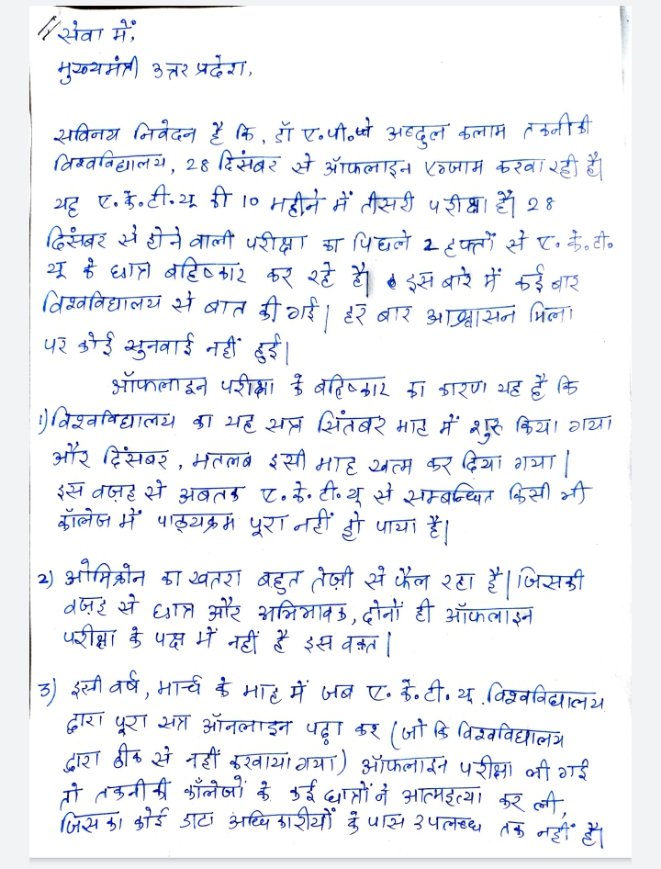 सेवा में,
मुख्यमंत्री उत्तर प्रदेश,
सविनय निवेदन है कि, डॉ ए०पी०जे अब्दुल कलाम तकनीकी
विश्वविद्यालय, 28 दिसंबर से ऑफलाइन एग्जाम करवा रही है|
यह ए.के.टी.यू की 10 महीने में तीसरी परीक्षा है| 28
दिसंबर से होने वाली परीक्षा का पिछले 2 हफ्तों से ए. के. टी.
यू के छात्र बहिष्कार कर रहे है| इस बारे में कई बार
विश्वविद्यालय से बात की गई| हर बार आश्वासन मिला
पर कोई सुनवाई नहीं हुई|
ऑफलाइन परीक्षा के बहिष्कार का कारण यह है कि
1) विश्वविद्यालय का यह सत्र सितंबर माह में शुरू किया गया
और दिसंबर, मतलब इसी माह खत्म कर दिया गया|
इस वजह से अबतक ए.के.टी.यू से सम्बन्धित किसी भी
कॉलेज में पाठ्यक्रम पूरा नहीं हो पाया है|
2) ओमिक्रोन का खतरा बहुत तेज़ी से फैल रहा है| जिसकी
वजह से छात्र और अभिभावक, दोनों ही ऑफलाइन
परीक्षा के पक्ष में नहीं है इस वक़्त|
3) इसी वर्ष, मार्च के माह में जब ए. के. टी. यू. विश्वविद्यालय
द्वारा पूरा सत्र ऑनलाइन पढ़ा कर (जो कि विश्वविद्यालय
द्वारा ठीक से नहीं करवाया गया) ऑफलाइन परीक्षा ली गई
तो तकनीकी कॉलेजों के कई छात्रों ने आत्महत्या कर ली,
जिसका कोई डाटा अधिकारीयों के पास उपलब्ध तक नहीं है|